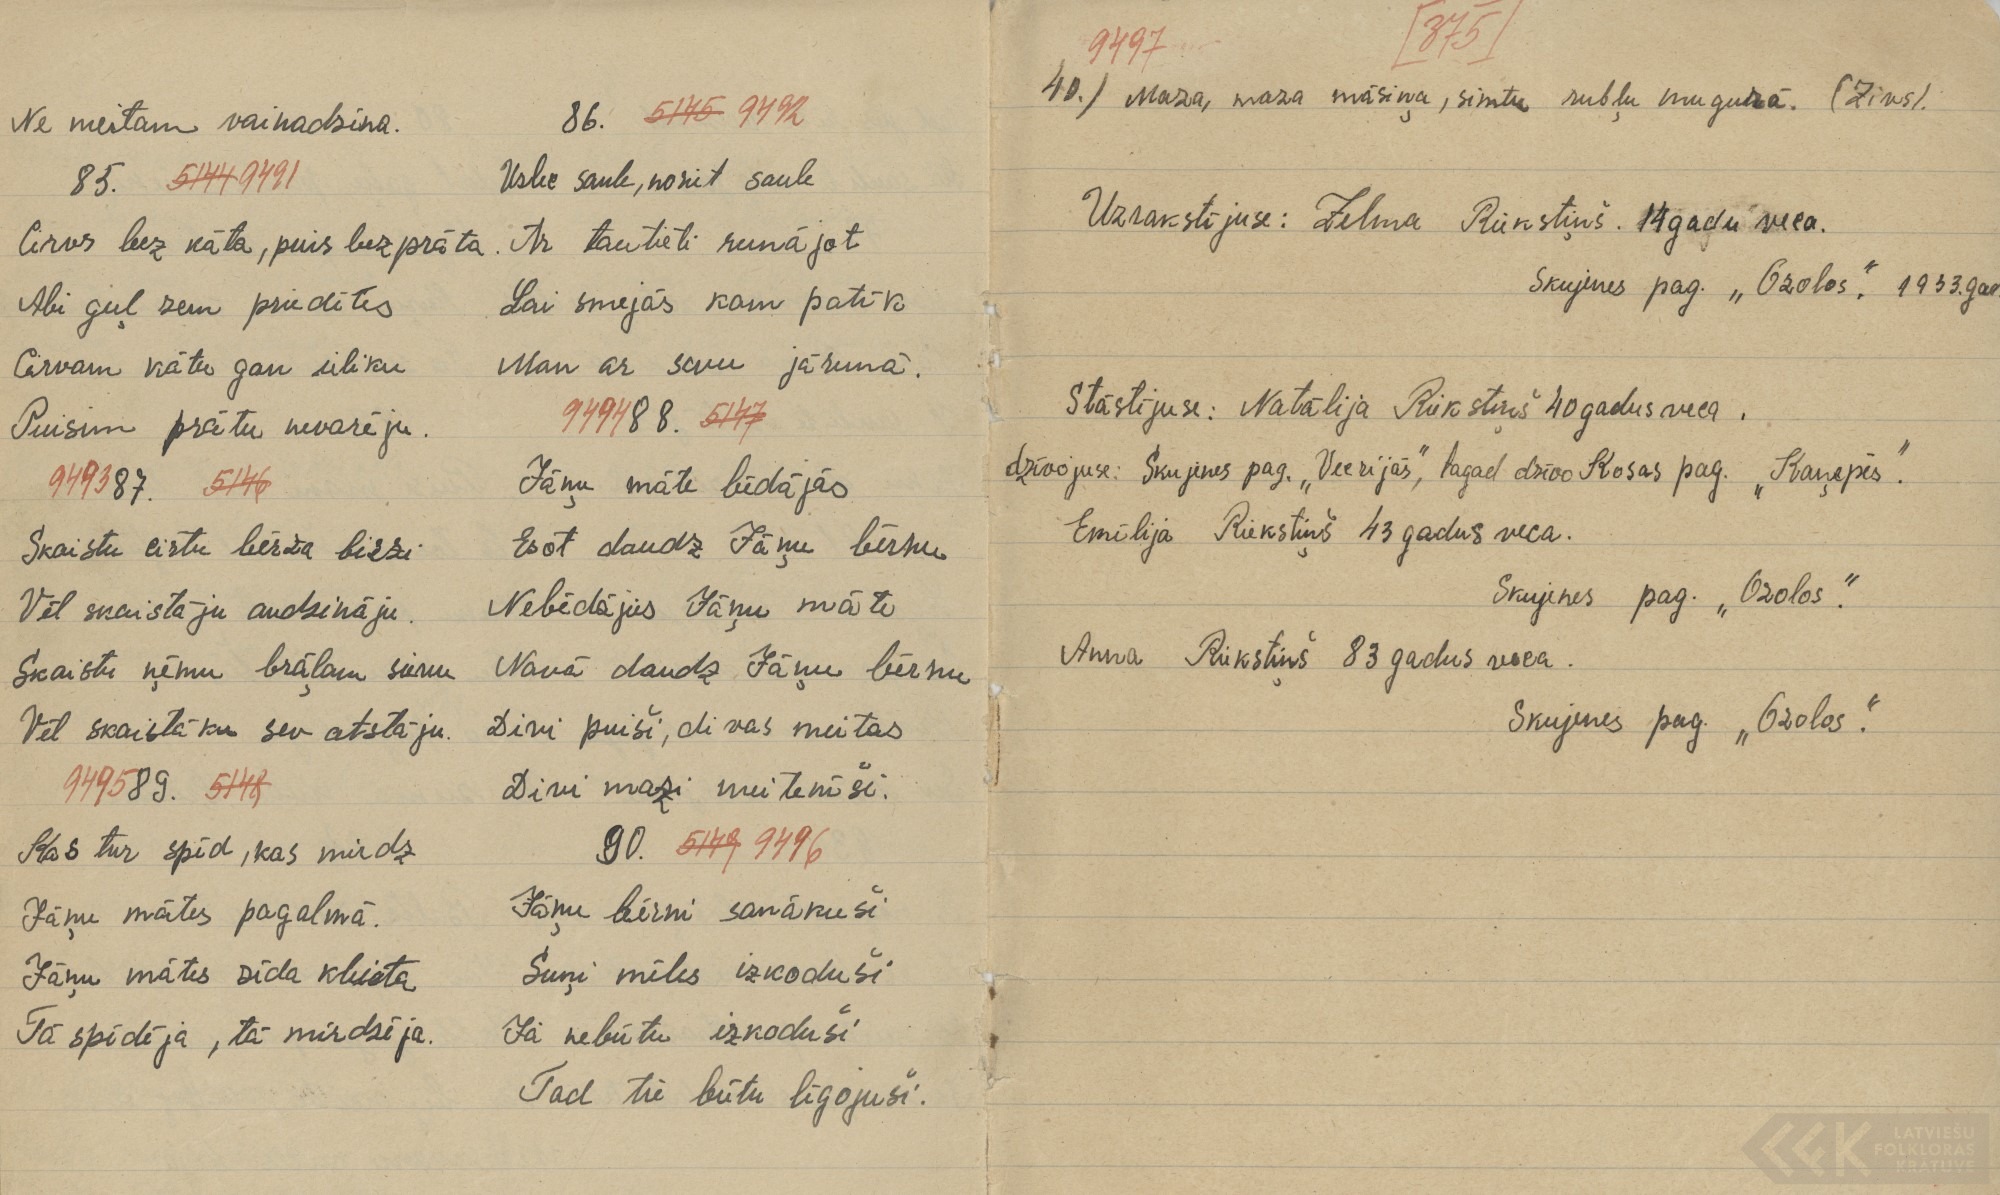 Ne meitam vainadziņa.
85. 5144 9491
Cirvs bez kāta, puis bez prāta.
Abi guļ zem priedītes
Cirvam kātu gan ieliku
Puisim prātu nevarēju.
9493 87. 5146
Skaistu cirtu bērza birzi
Vēl skaistāju audzināju.
Skaistu ņēmu brāļam sievu
Vēl skaistāku sev atstāju.
9495 89. 5148
Kas tur spīd, kas mirdz
Jāņu mātes pagalmā.
Jāņu mātes zīda kleita
Tā spīdēja, tā mirdzēja.
86. 5145 9492
Uzlec saule, noriet saule
Ar tautieti runājot
Lai smejās kam patīk
Man ar savu jārunā.
9494 88. 5147
Jāņu māte bēdājās
Esot daudz Jāņu bērnu
Nebēdājies Jāņu māte
Navā daudz Jāņu bērnu
Divi puiši, divas meitas
Divi mazi meitenīši.
90. 5149 9496
Jāņu bērni sanākuši
Suņi mēles izkoduši
Jā nebūtu izkoduši
Tad tie būtu līgojuši.
9497 [375]
40.) Maza, maza māsiņa, simtu rubļu mugurā. (Zivs).
Uzrakstījuse: Zelma Riekstiņš. 14 gadu veca.
Skujenes pag. „Ozolos“. 1933. gad.
Stāstījuse: Natālija Riekstiņš 40 gadus veca.
dzīvojuse: Skujenes pag. „Vecrijās“, tagad dzīvo Kosas pag. „Kaņepēs“.
Emīlija Riekstiņš 43 gadus veca.
Skujenes pag. „Ozolos“.
Anna Riekstiņš 83 gadus veca.
Skujenes pag. „Ozolos“.
LATVIEŠU
FOLKLORAS
KRĀTUVE